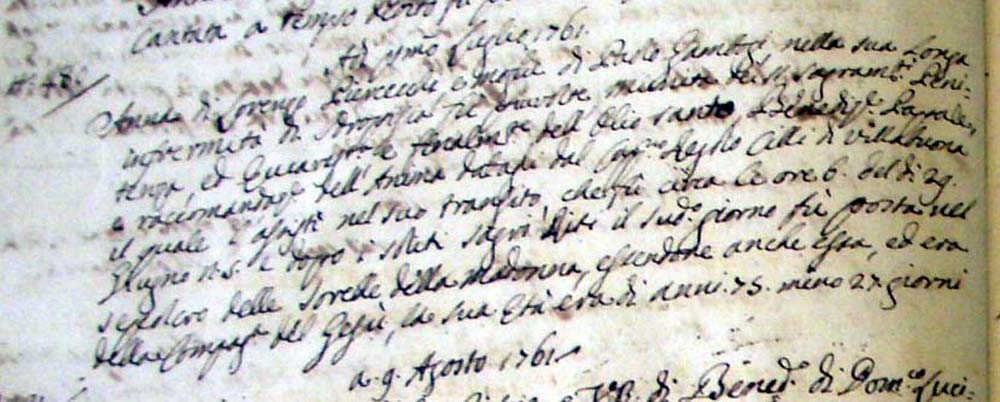 Cantata a tempo
Ad pmo Luglio 1761.
n. 48.
Anna di Lorenzo e moglie di Paolo nella sua Longa
infermità di Idropisia fu più volte munita de SS. Sagramti. Peni-
tenza, ed Eucarestia e finalmte dell'Olio Santo, Benedizne Papale,
e raccomandaze dell'Anima datale dal Cilli di Villabuona
il quale l'assistì nel suo transito, che fù circa le ore 6. del dì 29.
Giugno n.s. e dopo i soliti sagri Riti il sudo giorno fù posta nel
sepolcro delle sorelle della Madonna, essendone anche essa, ed era
della Compaga del Gesù, la sua Età era di anni 75. meno 27. giorni
a 9. Agosto 1761.
di Benedo di Domco Luci-